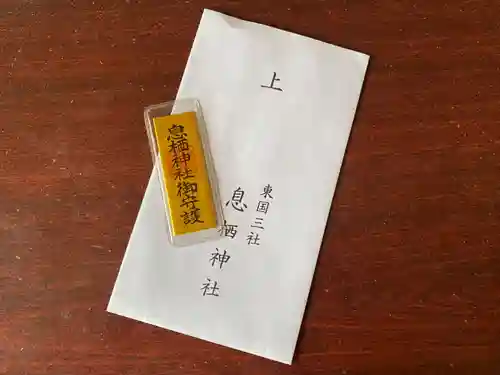 上
東国三社
息栖神社
息栖神社御守護